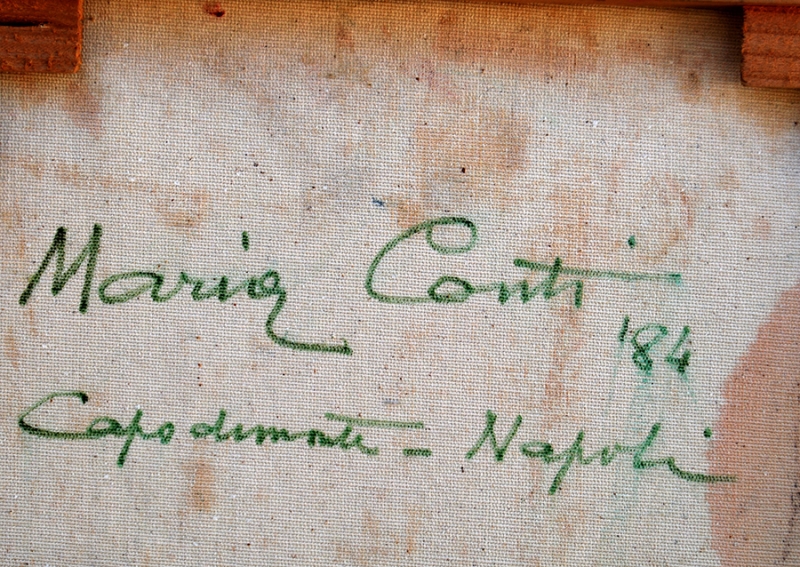 Maria Conti
'84
Capodimonte - Napoli